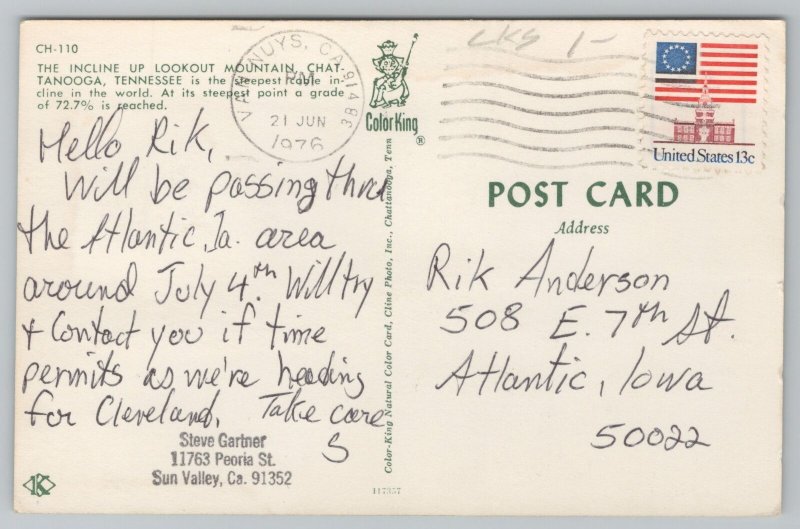 CH-110
THE INCLINE UP LOOKOUT MOUNTAIN, CHAT-
TANOOGA, TENNESSEE is the steepest cable in-
cline in the world. At its steepest point a grade
of 72.7% is reached.
Hello Rik,
Will be passing thru
the Atlantic, Ia. area
around July 4th. Will try
+ Contact you if time
permits as we're heading
for Cleveland. Take care
S
Steve Gartner
11763 Peoria St.
Sun Valley, Ca. 91352
K
VAN NUYS, CA 914
PM
21 JUN
1976
Color King
®
Color-King Natural Color Card, Cline Photo, Inc., Chattanooga, Tenn
117357
1-
United States 13c
POST CARD
Address
Rik Anderson
508 E. 7th St.
Atlantic, Iowa
50022